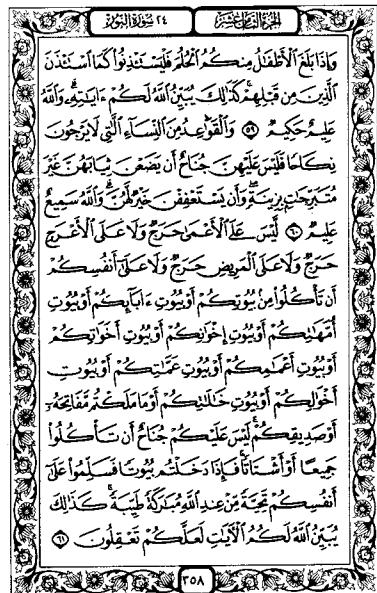 الجزء الثامن عشر ٢٤ سورة النور
وَإِذَا بَلَغَ ٱلْأَطْفَٰلُ مِنكُمُ ٱلْحُلُمَ فَلْيَسْتَـْٔذِنُوا۟ كَمَا ٱسْتَـْٔذَنَ
ٱلَّذِينَ مِن قَبْلِهِمْ ۚ كَذَٰلِكَ يُبَيِّنُ ٱللَّهُ لَكُمْ ءَايَٰتِهِۦ ۗ وَٱللَّهُ
عَلِيمٌ حَكِيمٌ ٥٩ وَٱلْقَوَٰعِدُ مِنَ ٱلنِّسَآءِ ٱلَّٰتِى لَا يَرْجُونَ
نِكَاحًا فَلَيْسَ عَلَيْهِنَّ جُنَاحٌ أَن يَضَعْنَ ثِيَابَهُنَّ غَيْرَ
مُتَبَرِّجَٰتٍۭ بِزِينَةٍ ۖ وَأَن يَسْتَعْفِفْنَ خَيْرٌ لَّهُنَّ ۗ وَٱللَّهُ سَمِيعٌ
عَلِيمٌ ٦٠ لَّيْسَ عَلَى ٱلْأَعْمَىٰ حَرَجٌ وَلَا عَلَى ٱلْأَعْرَجِ
حَرَجٌ وَلَا عَلَى ٱلْمَرِيضِ حَرَجٌ وَلَا عَلَىٰٓ أَنفُسِكُمْ
أَن تَأْكُلُوا۟ مِنۢ بُيُوتِكُمْ أَوْ بُيُوتِ ءَابَآئِكُمْ أَوْ بُيُوتِ
أُمَّهَٰتِكُمْ أَوْ بُيُوتِ إِخْوَٰنِكُمْ أَوْ بُيُوتِ أَخَوَٰتِكُمْ
أَوْ بُيُوتِ أَعْمَٰمِكُمْ أَوْ بُيُوتِ عَمَّٰتِكُمْ أَوْ بُيُوتِ
أَخْوَٰلِكُمْ أَوْ بُيُوتِ خَٰلَٰتِكُمْ أَوْ مَا مَلَكْتُم مَّفَاتِحَهُۥٓ
أَوْ صَدِيقِكُمْ ۚ لَيْسَ عَلَيْكُمْ جُنَاحٌ أَن تَأْكُلُوا۟
جَمِيعًا أَوْ أَشْتَاتًا ۚ فَإِذَا دَخَلْتُم بُيُوتًا فَسَلِّمُوا۟ عَلَىٰٓ
أَنفُسِكُمْ تَحِيَّةً مِّنْ عِندِ ٱللَّهِ مُبَٰرَكَةً طَيِّبَةً ۚ كَذَٰلِكَ
يُبَيِّنُ ٱللَّهُ لَكُمُ ٱلْءَايَٰتِ لَعَلَّكُمْ تَعْقِلُونَ ٦١
٣٥٨